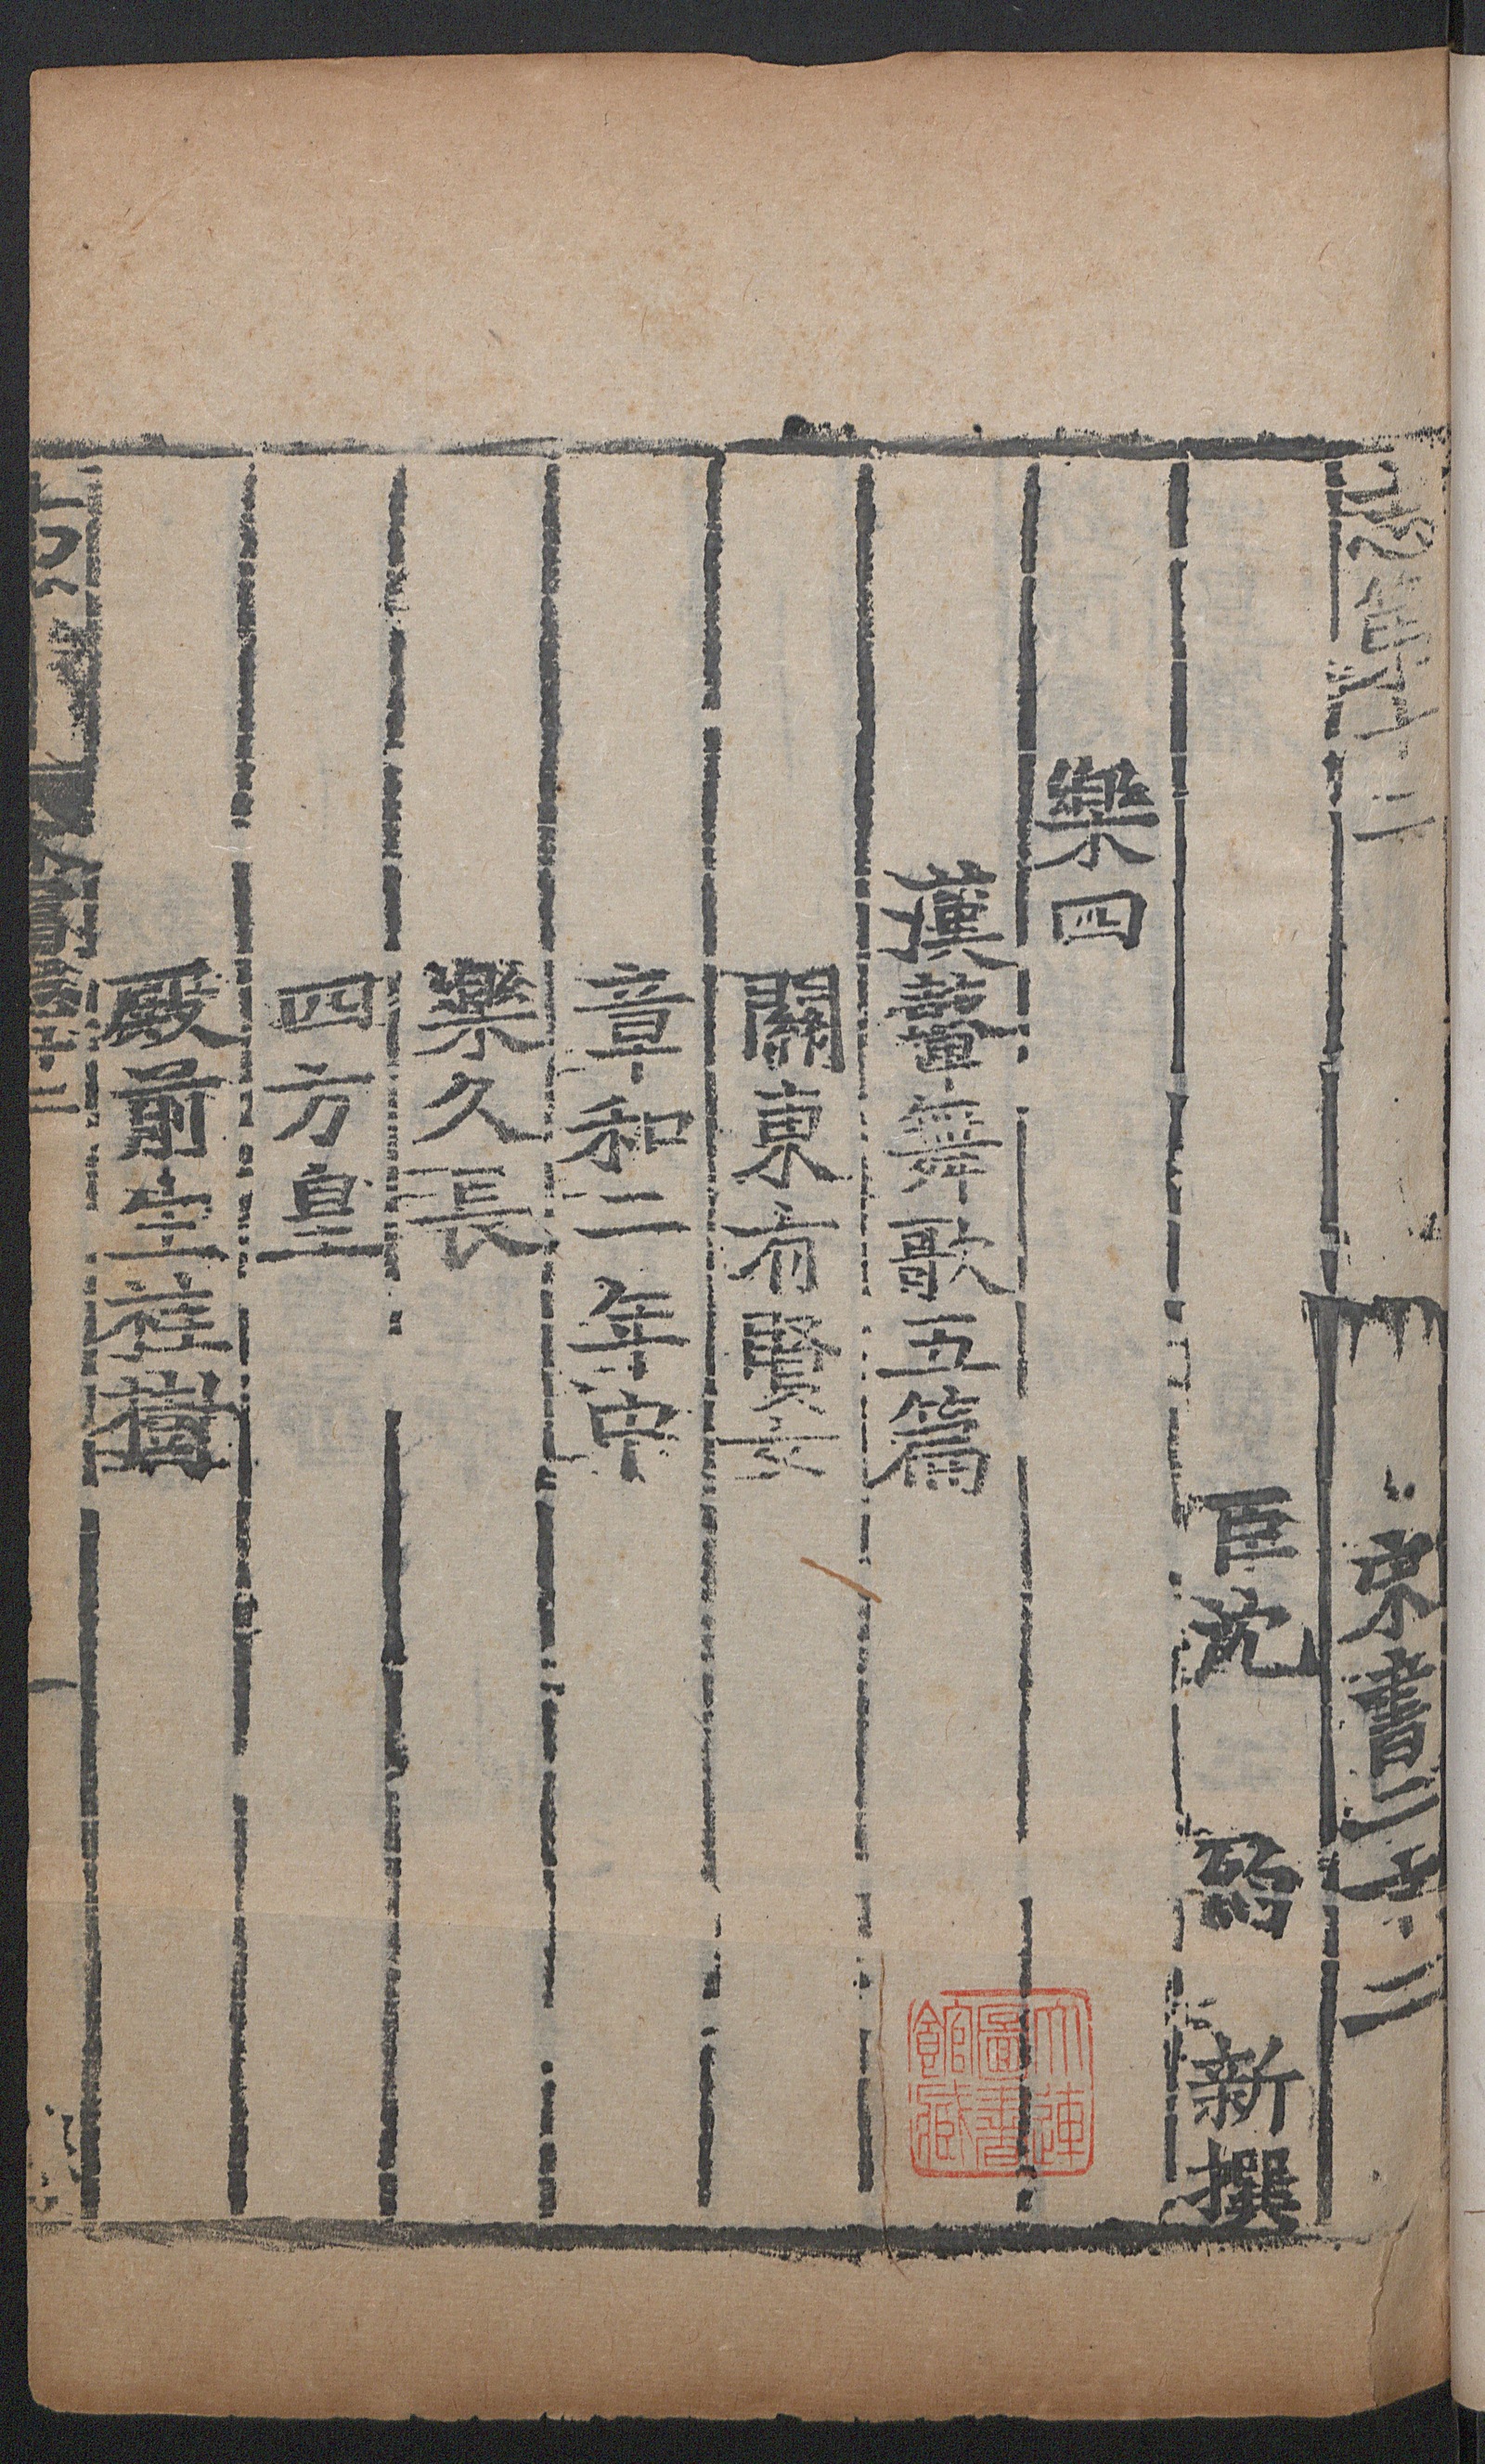 志第十二　宋書二十二
臣沈　約　新撰
樂四
漢鼙舞歌五篇
關東有賢女
章和二年中
樂久長
四方皇
殿前生桂樹
大連圖書館藏